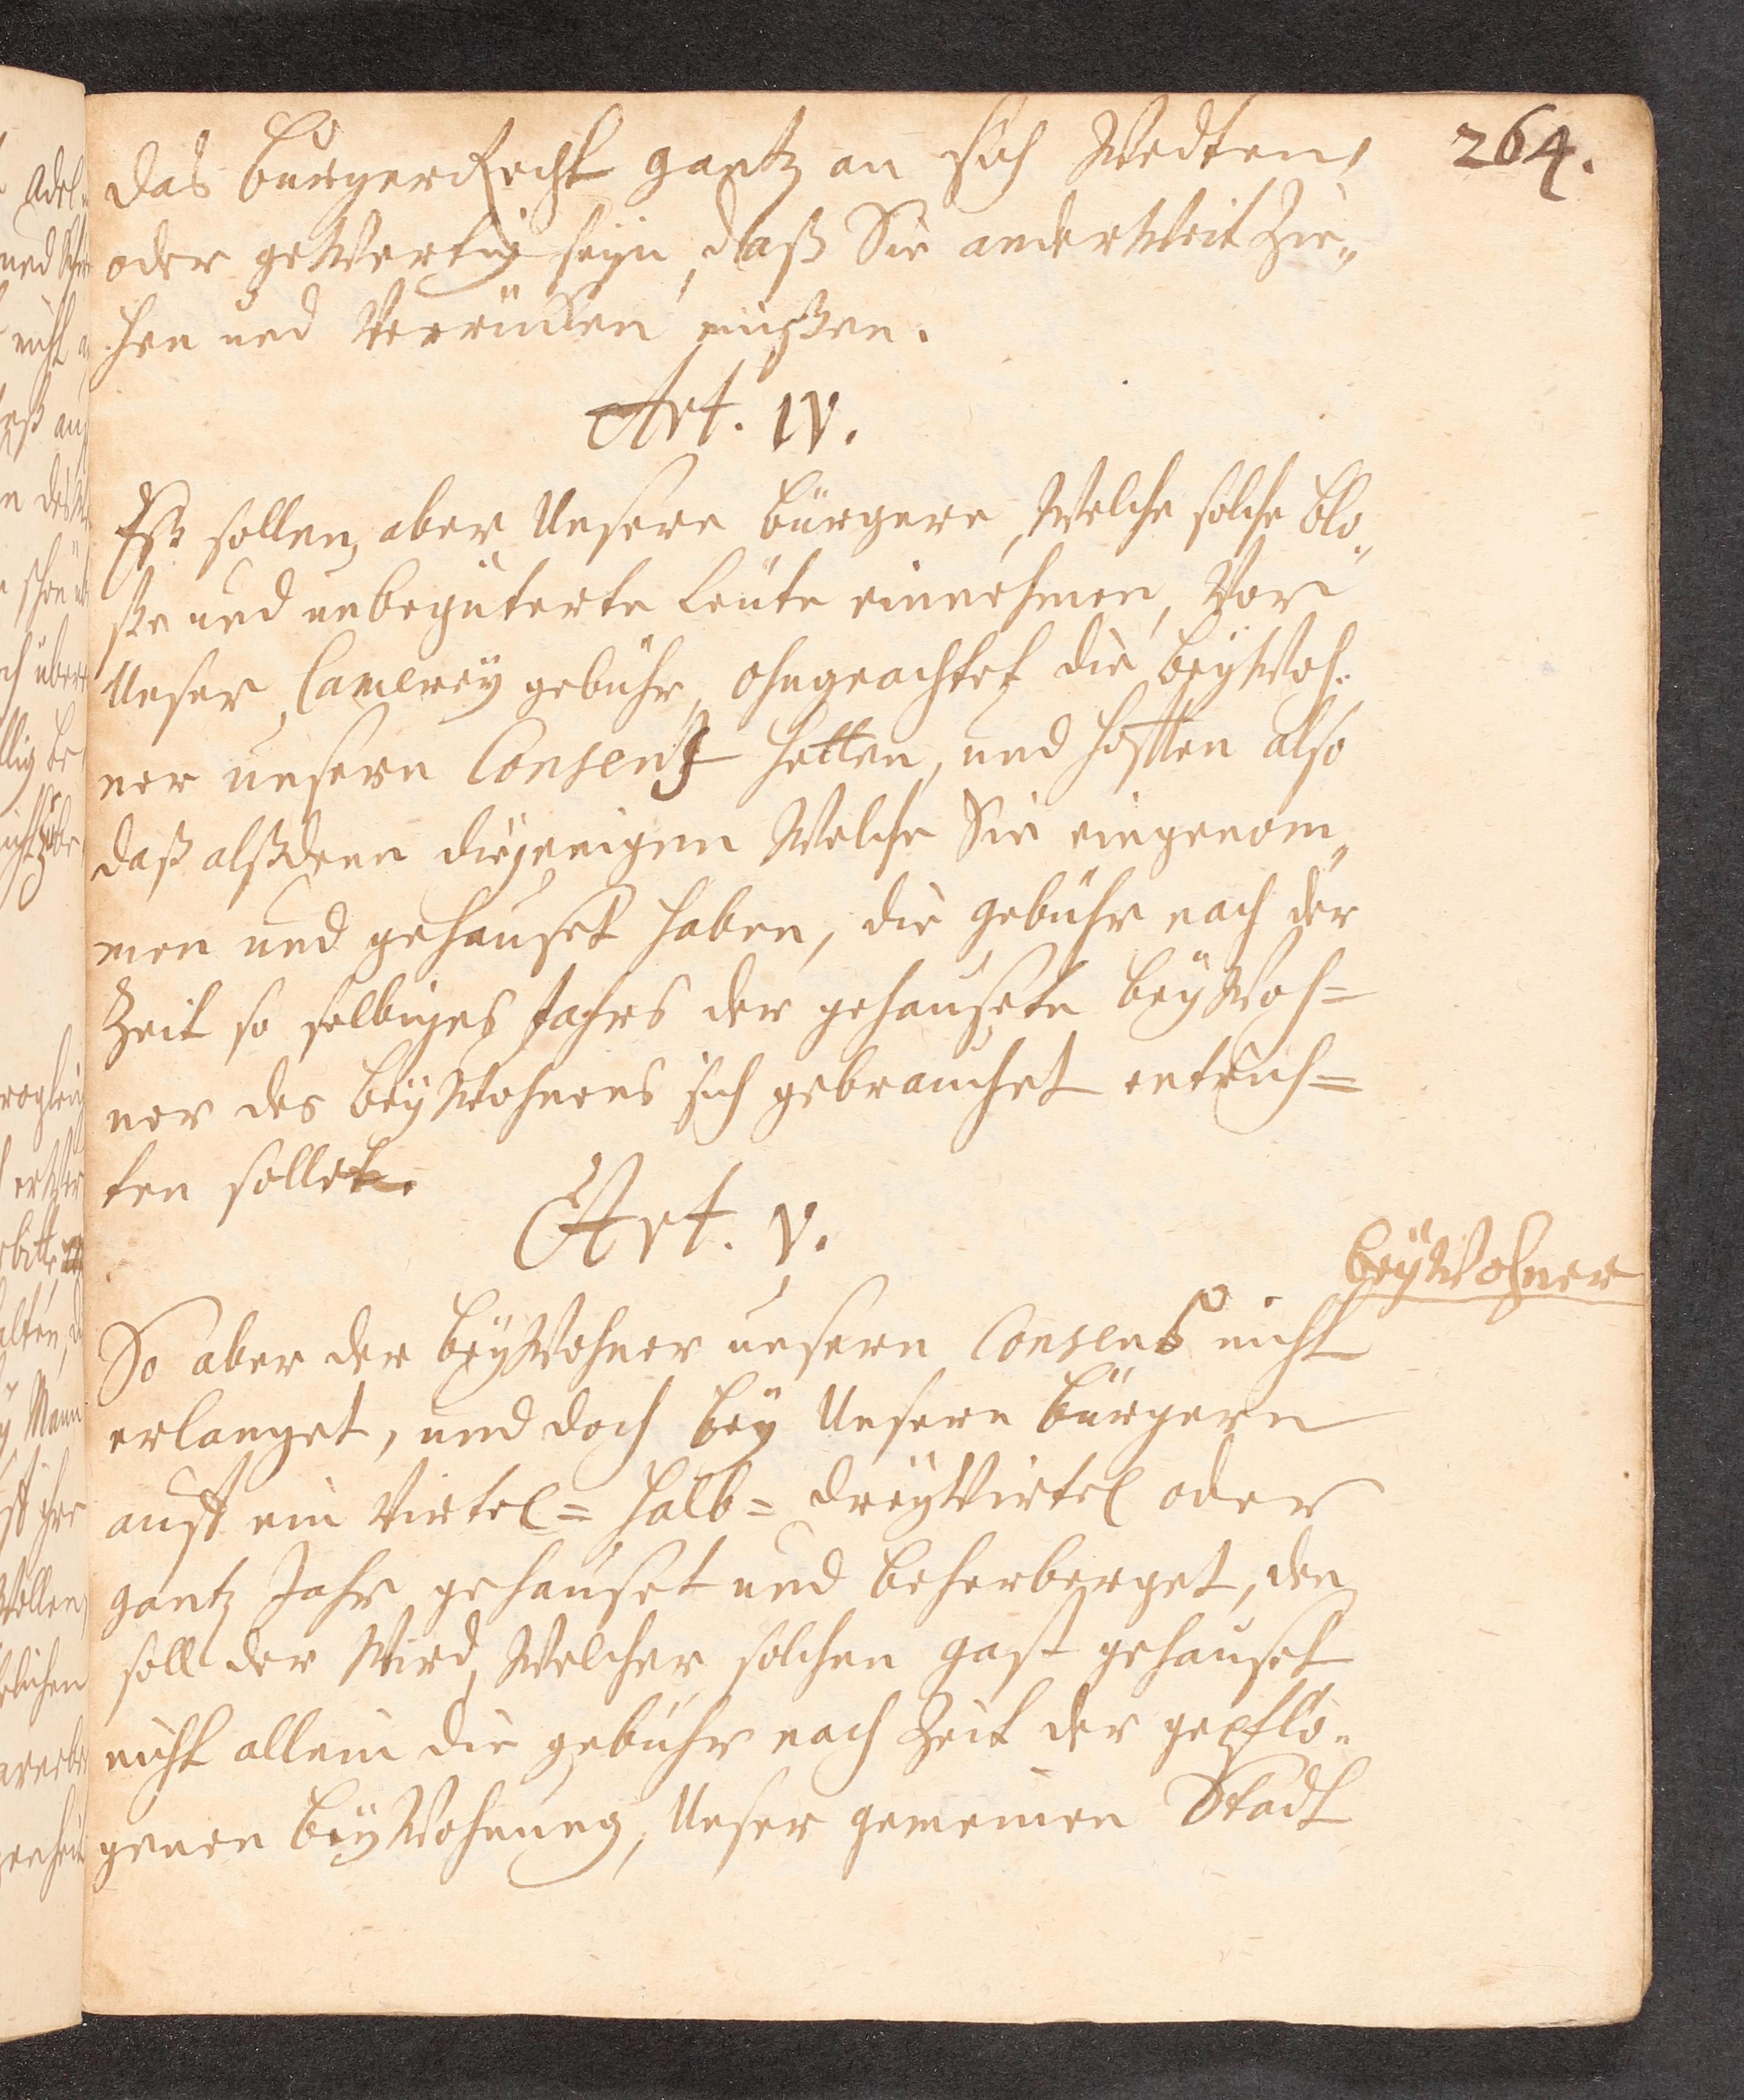 264.
das bürgerRecht gantz an sich
oder geWertig seyn, daß Sie anderWeit Zie„
hen und Verrücken müßen.
Art. IV.
Eß sollen, aber Unsere bürgere, Welche solche blo„
ße und unbegüterte Leüte einnehmen, Vor
Unser Camerey gebühr, ohngeachtet die beyWoh„
ner unsern Consens hetten, und also
daß alßdenn diejenigen Welche Sie eingenom„
men und gehauset haben, die gebühr nach der
Zeit so selbiges Jahrs der gehausete beyWoh=
ner des beyWohnens sich gebrauchet entrich=
ten sollet.
Art. V.
beyWohner
So aber der beyWohner unsern Consens nicht
erlanget, und doch bey Unsern bürgern
auff ein Virtel= halb= dreyVirtel oder
gantz Jahr gehauset und beherberget, den
soll der Wird, Welcher solchen gast gehauset
nicht allein die gebühr nach Zeit der gepflo„
genen beyWohnung, Unser gemeinen Stadt